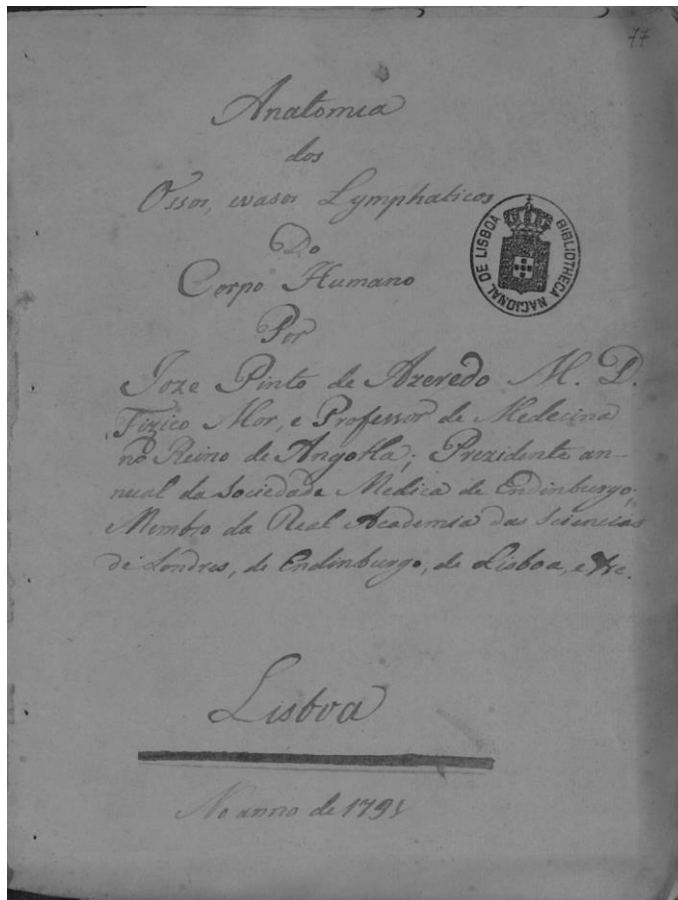 77
Anatomia
dos
Ossos, evasos Lymphaticos
Do
Corpo Humano
Por
Joze Pinto de Azeredo M. D.
Fizico Mor, e Professor de Medecina
no Reino de Angolla; Prezidente an-
nual da Sociedade Medica de Endinburgo;
Membro da Real Academia das Sciencias
de Londres, de Endinburgo, de Lisboa, etc.
BIBLIOTHECA NACIONAL DE LISBOA
Lisboa
No anno de 1791